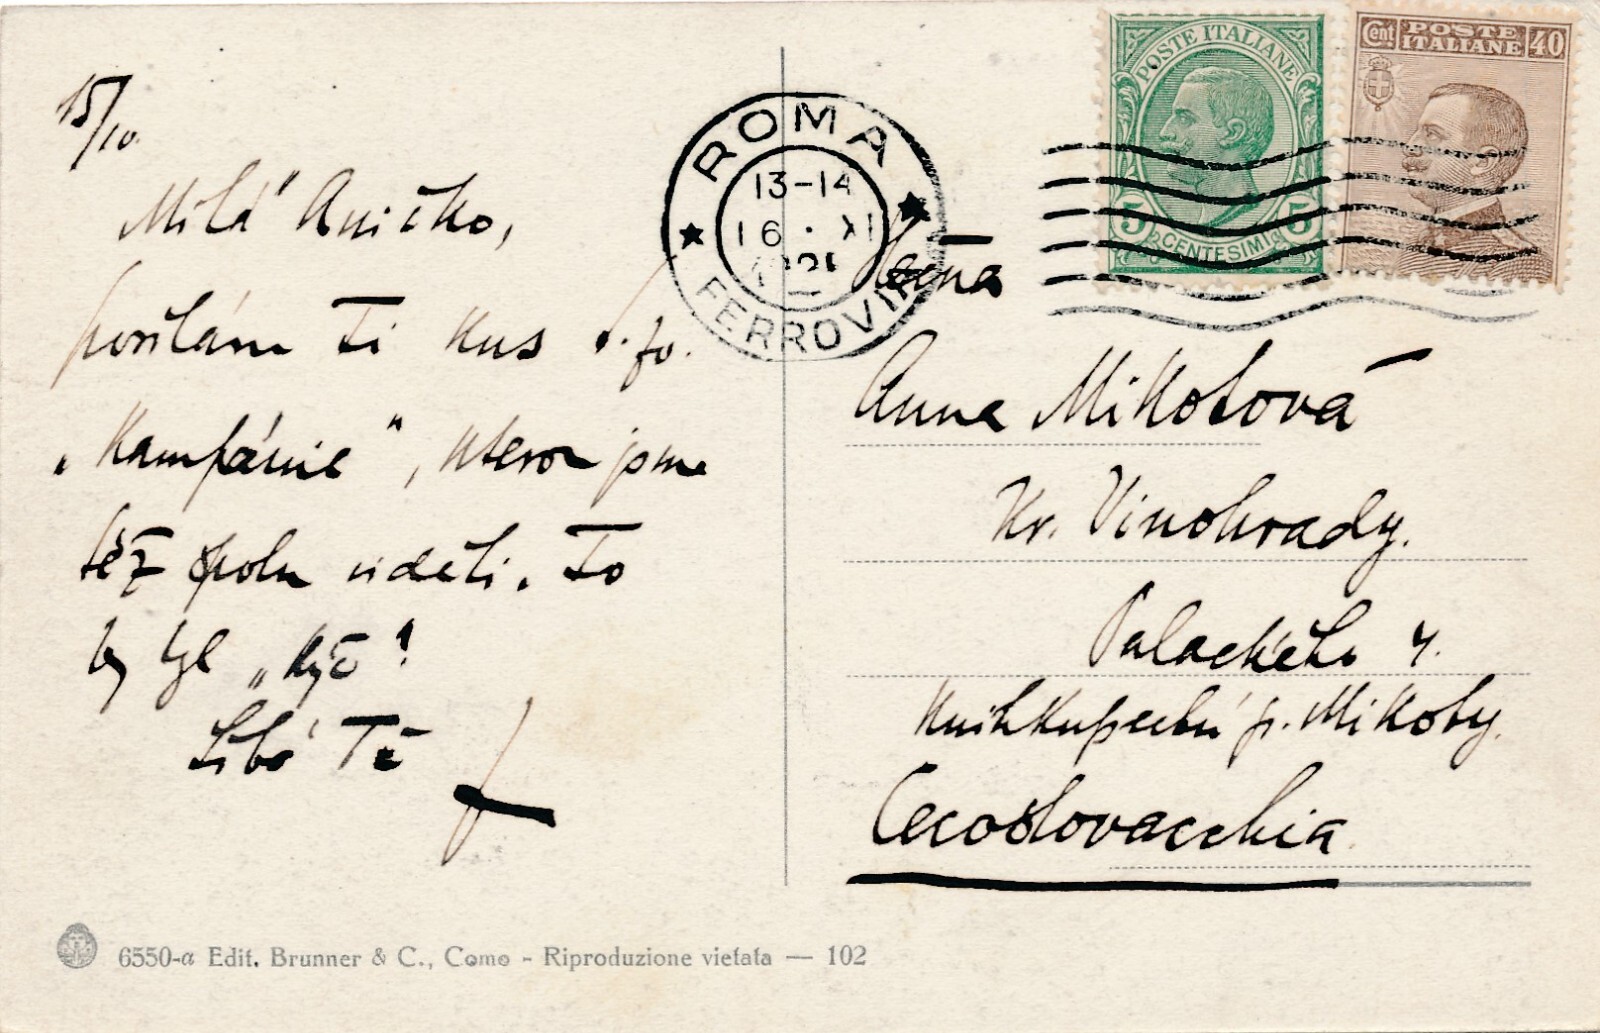 15/10.
Milá Aničko,
posílám Ti kus
„Kampánie“, kterou jsme
též spolu viděli. To
by byl „kýč“!
Líbá Tě
POSTE ITALIANE
5 CENTESIMI 5
Cent POSTE ITALIANE 40
ROMA
13-14
16 · XI
FERROVIA
Anna Mikotová
Kr. Vinohrady.
Palackého 4.
Knihkupectví p. Mikoty.
Cecoslovacchia
6550-a Edit. Brunner & C., Como - Riproduzione vietata — 102